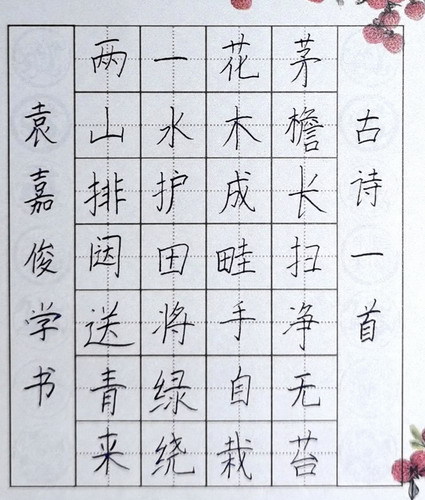 古诗一首
茅檐长扫净无苔
花木成畦手自栽
一水护田将绿绕
两山排闼送青来
袁嘉俊学书